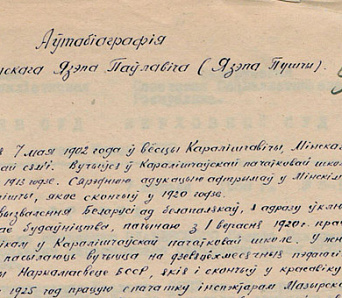 Аўтабіяграфія
Язэпа Паўлавіча (Язэпа Пушчы).
7 мая 1902 года ў вёсцы Каралішчавічы, Мінска
Вучыўся ў Каралішчаўскай пачаткавай школ
1913 годзе. Сярэднюю адукацыю атрымаў у Мінскім
якое скончыў у 1920 годзе.
Беларусі ад белапалякаў, я адразу ўклю
будаўніцтва, пачынаю з 1 верасня 1920 г. прац
у Каралішчаўскай пачаткавай школе. У
пасылаюць вучыцца на
Наркамасветы БССР, якія і скончыў у красавіку
1925 год працую спачатку інспектарам Мазырска